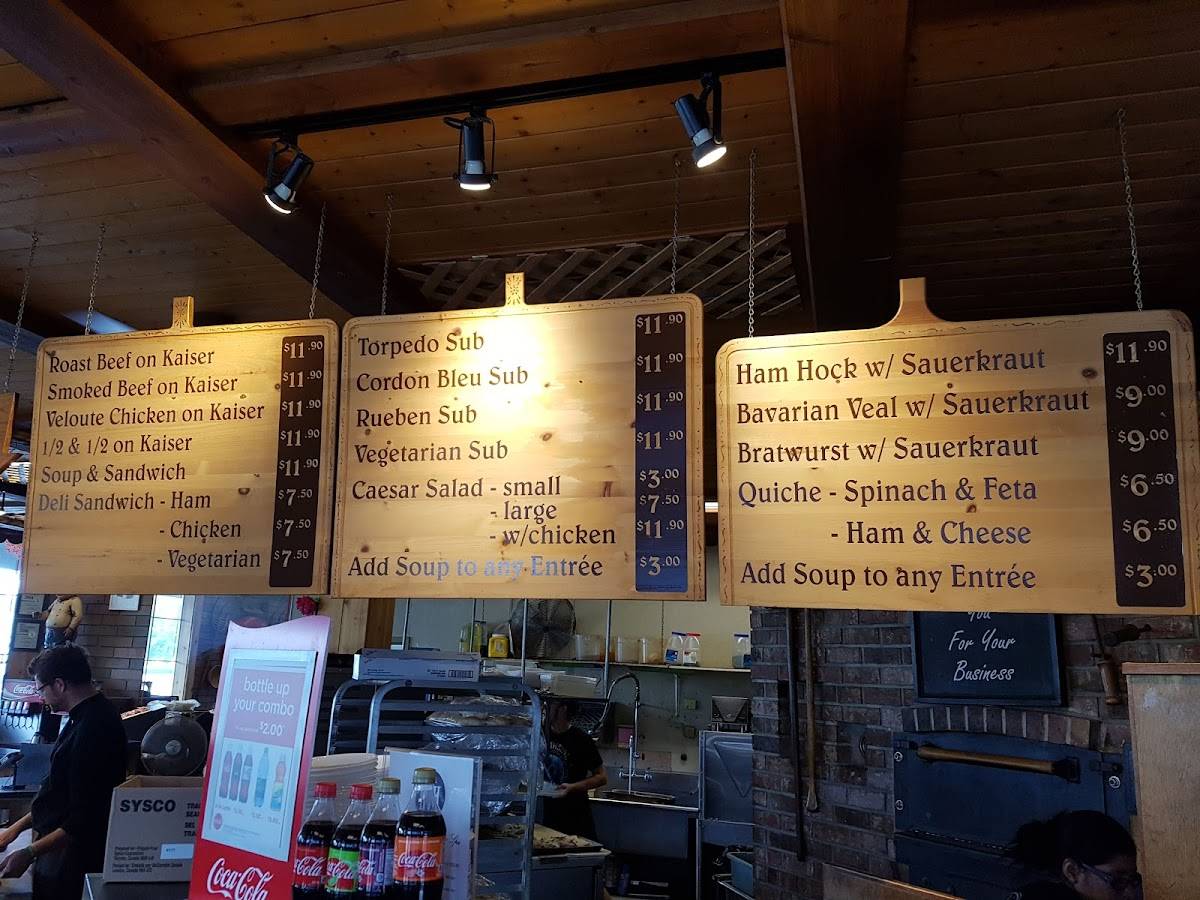 Roast Beef on Kaiser $11.90
Smoked Beef on Kaiser $11.90
Veloute Chicken on Kaiser $11.90
1/2 & 1/2 on Kaiser $11.90
Soup & Sandwich $11.90
Deli Sandwich - Ham $7.50
- Chicken $7.50
- Vegetarian $7.50
Torpedo Sub $11.90
Cordon Bleu Sub $11.90
Rueben Sub $11.90
Vegetarian Sub $11.90
Caesar Salad - small $3.00
- large $7.50
- w/chicken $11.90
Add Soup to any Entrée $3.00
Ham Hock w/ Sauerkraut $11.90
Bavarian Veal w/ Sauerkraut $9.00
Bratwurst w/ Sauerkraut $9.00
Quiche - Spinach & Feta $6.50
- Ham & Cheese $6.50
Add Soup to any Entrée $3.00
You
For Your
Business
bottle up
your combo
$2.00
Coca-Cola
SYSCO
Coca-Cola
Coca-Cola
Coca-Cola
Coca-Cola